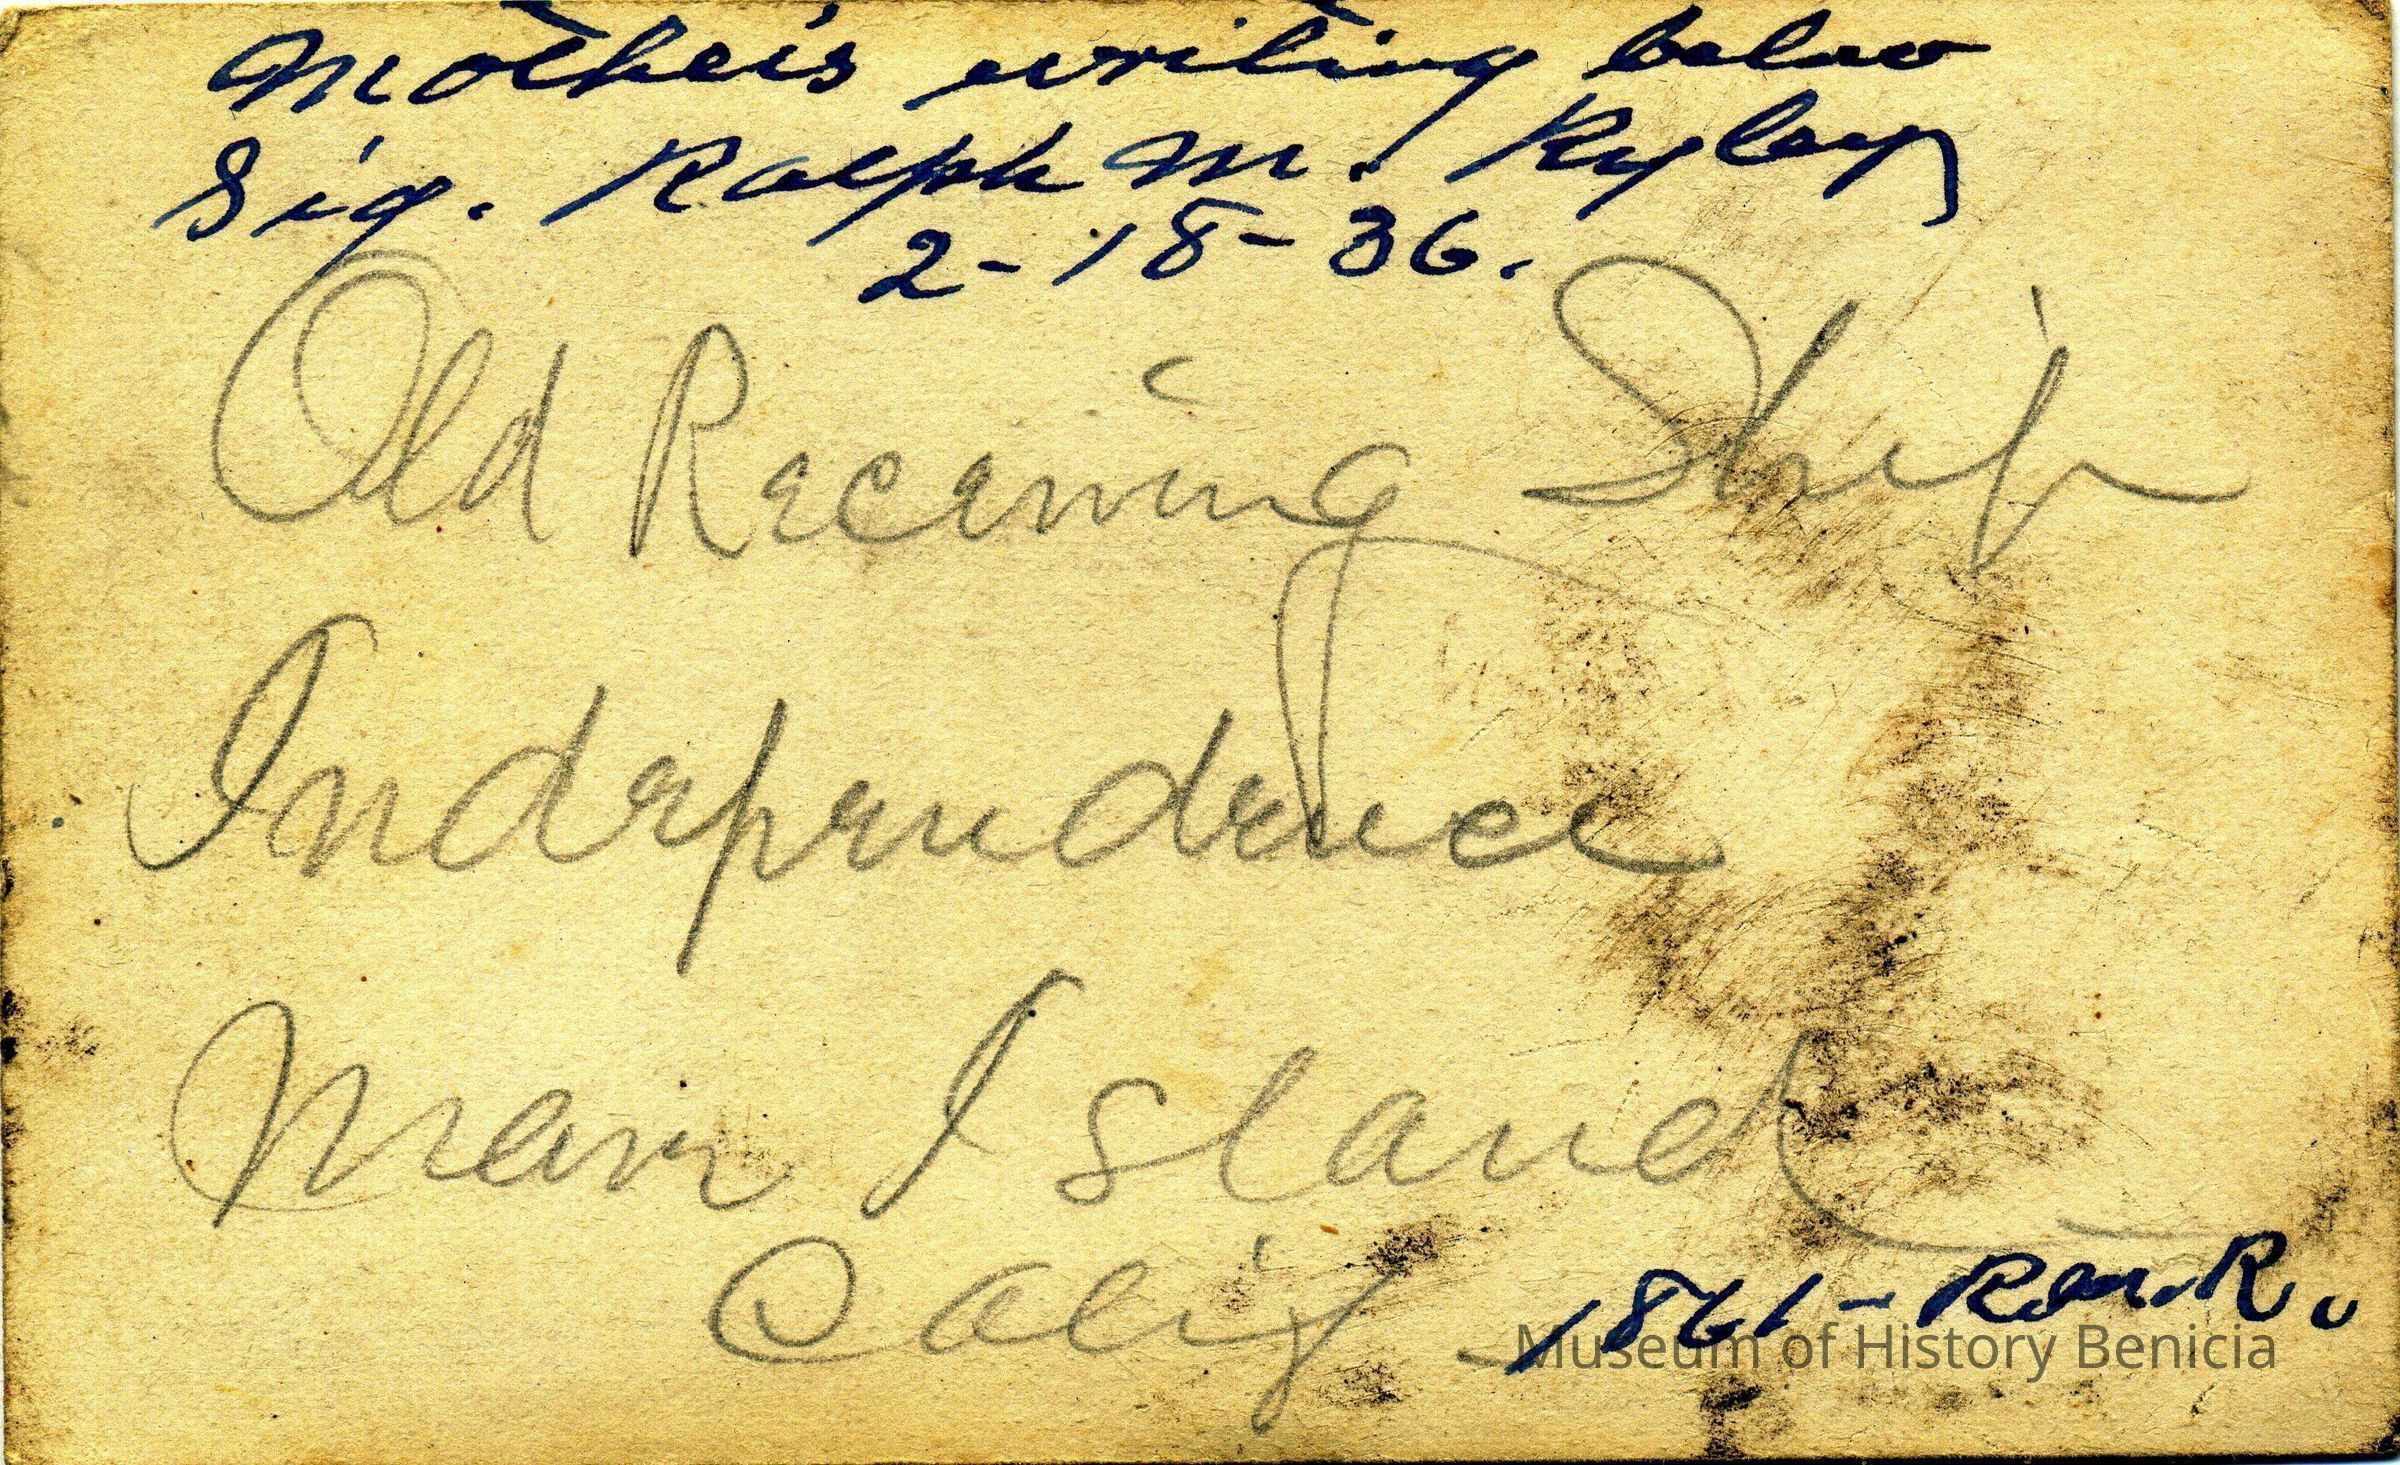 Mother's writing below
Sig. Ralph M. Ryley
2-18-36.
Old Receiving Ship
Independence
Mare Island
Calif
1861-R.M.R.
Museum of History Benicia